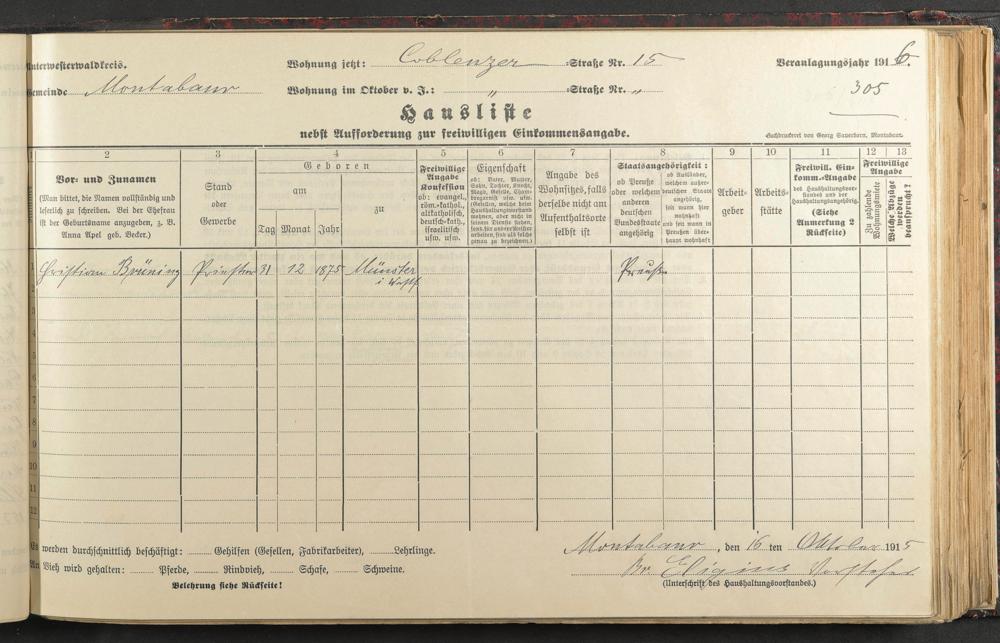 Unterwesterwaldkreis.
Gemeinde Montabaur
Wohnung jetzt: Coblenzer Straße Nr. 15
Wohnung im Oktober v. J.: " Straße Nr. "
Veranlagungsjahr 1916.
305
Hausliste
nebst Aufforderung zur freiwilligen Einkommensangabe.
Buchdruckerei von Georg Sauerborn, Montabaur.
1 2 3 4 5 6 7 8 9 10 11 12 13
Vor- und Zunamen
(Man bittet, die Namen vollständig und
leserlich zu schreiben. Bei der Ehefrau
ist der Geburtsname anzugeben, z. B.
Anna Apel geb. Becker.)
Stand
oder
Gewerbe
Geboren
am
zu
Tag Monat Jahr
Freiwillige
Angabe
Konfession
ob: evangel.,
röm.-kathol.,
altkatholisch,
deutsch-kath.,
israelitisch
usw. usw.
Eigenschaft
ob: Vater, Mutter,
Sohn, Tochter, Knecht,
Magd, Geselle, Cham-
bregarnist usw. usw.
(Gesellen, welche beim
Haushaltungsvorstand
wohnen, aber nicht in
seinem Dienste stehen,
sondern für andere Meister
arbeiten, sind als solche
genau zu bezeichnen.)
Angabe des
Wohnsitzes, falls
derselbe nicht am
Aufenthaltsorte
selbst ist
Staatsangehörigkeit:
ob Preuße
oder welchem
anderen
deutschen
Bundesstaate
angehörig
ob Ausländer,
welchem außer-
deutscher Staate
angehörig,
seit wann hier
wohnhaft
und seit wann in
Preußen über-
haupt wohnhaft
Arbeit-
geber
Arbeits-
stätte
Freiwill. Ein-
komm.-Angabe
des Haushaltungsvor-
standes und der
Haushaltungsangehörig.
(Siehe
Anmerkung 2
Rückseite)
Freiwillige
Angabe
Zu zahlende
Wohnungsmiete
Welche Abzüge
werden
beansprucht?
Christian Brüning Priester 31 12 1875 Münster i Westf Preuße
2
3
4
5
6
7
8
9
10
11
12
werden durchschnittlich beschäftigt: Gehilfen (Gesellen, Fabrikarbeiter), Lehrlinge.
Vieh wird gehalten: Pferde, Rindvieh, Schafe, Schweine.
Belehrung siehe Rückseite!
Montabaur, den 16 ten Oktober 1915
Br. Eligius Vorsteher
(Unterschrift des Haushaltungsvorstandes.)